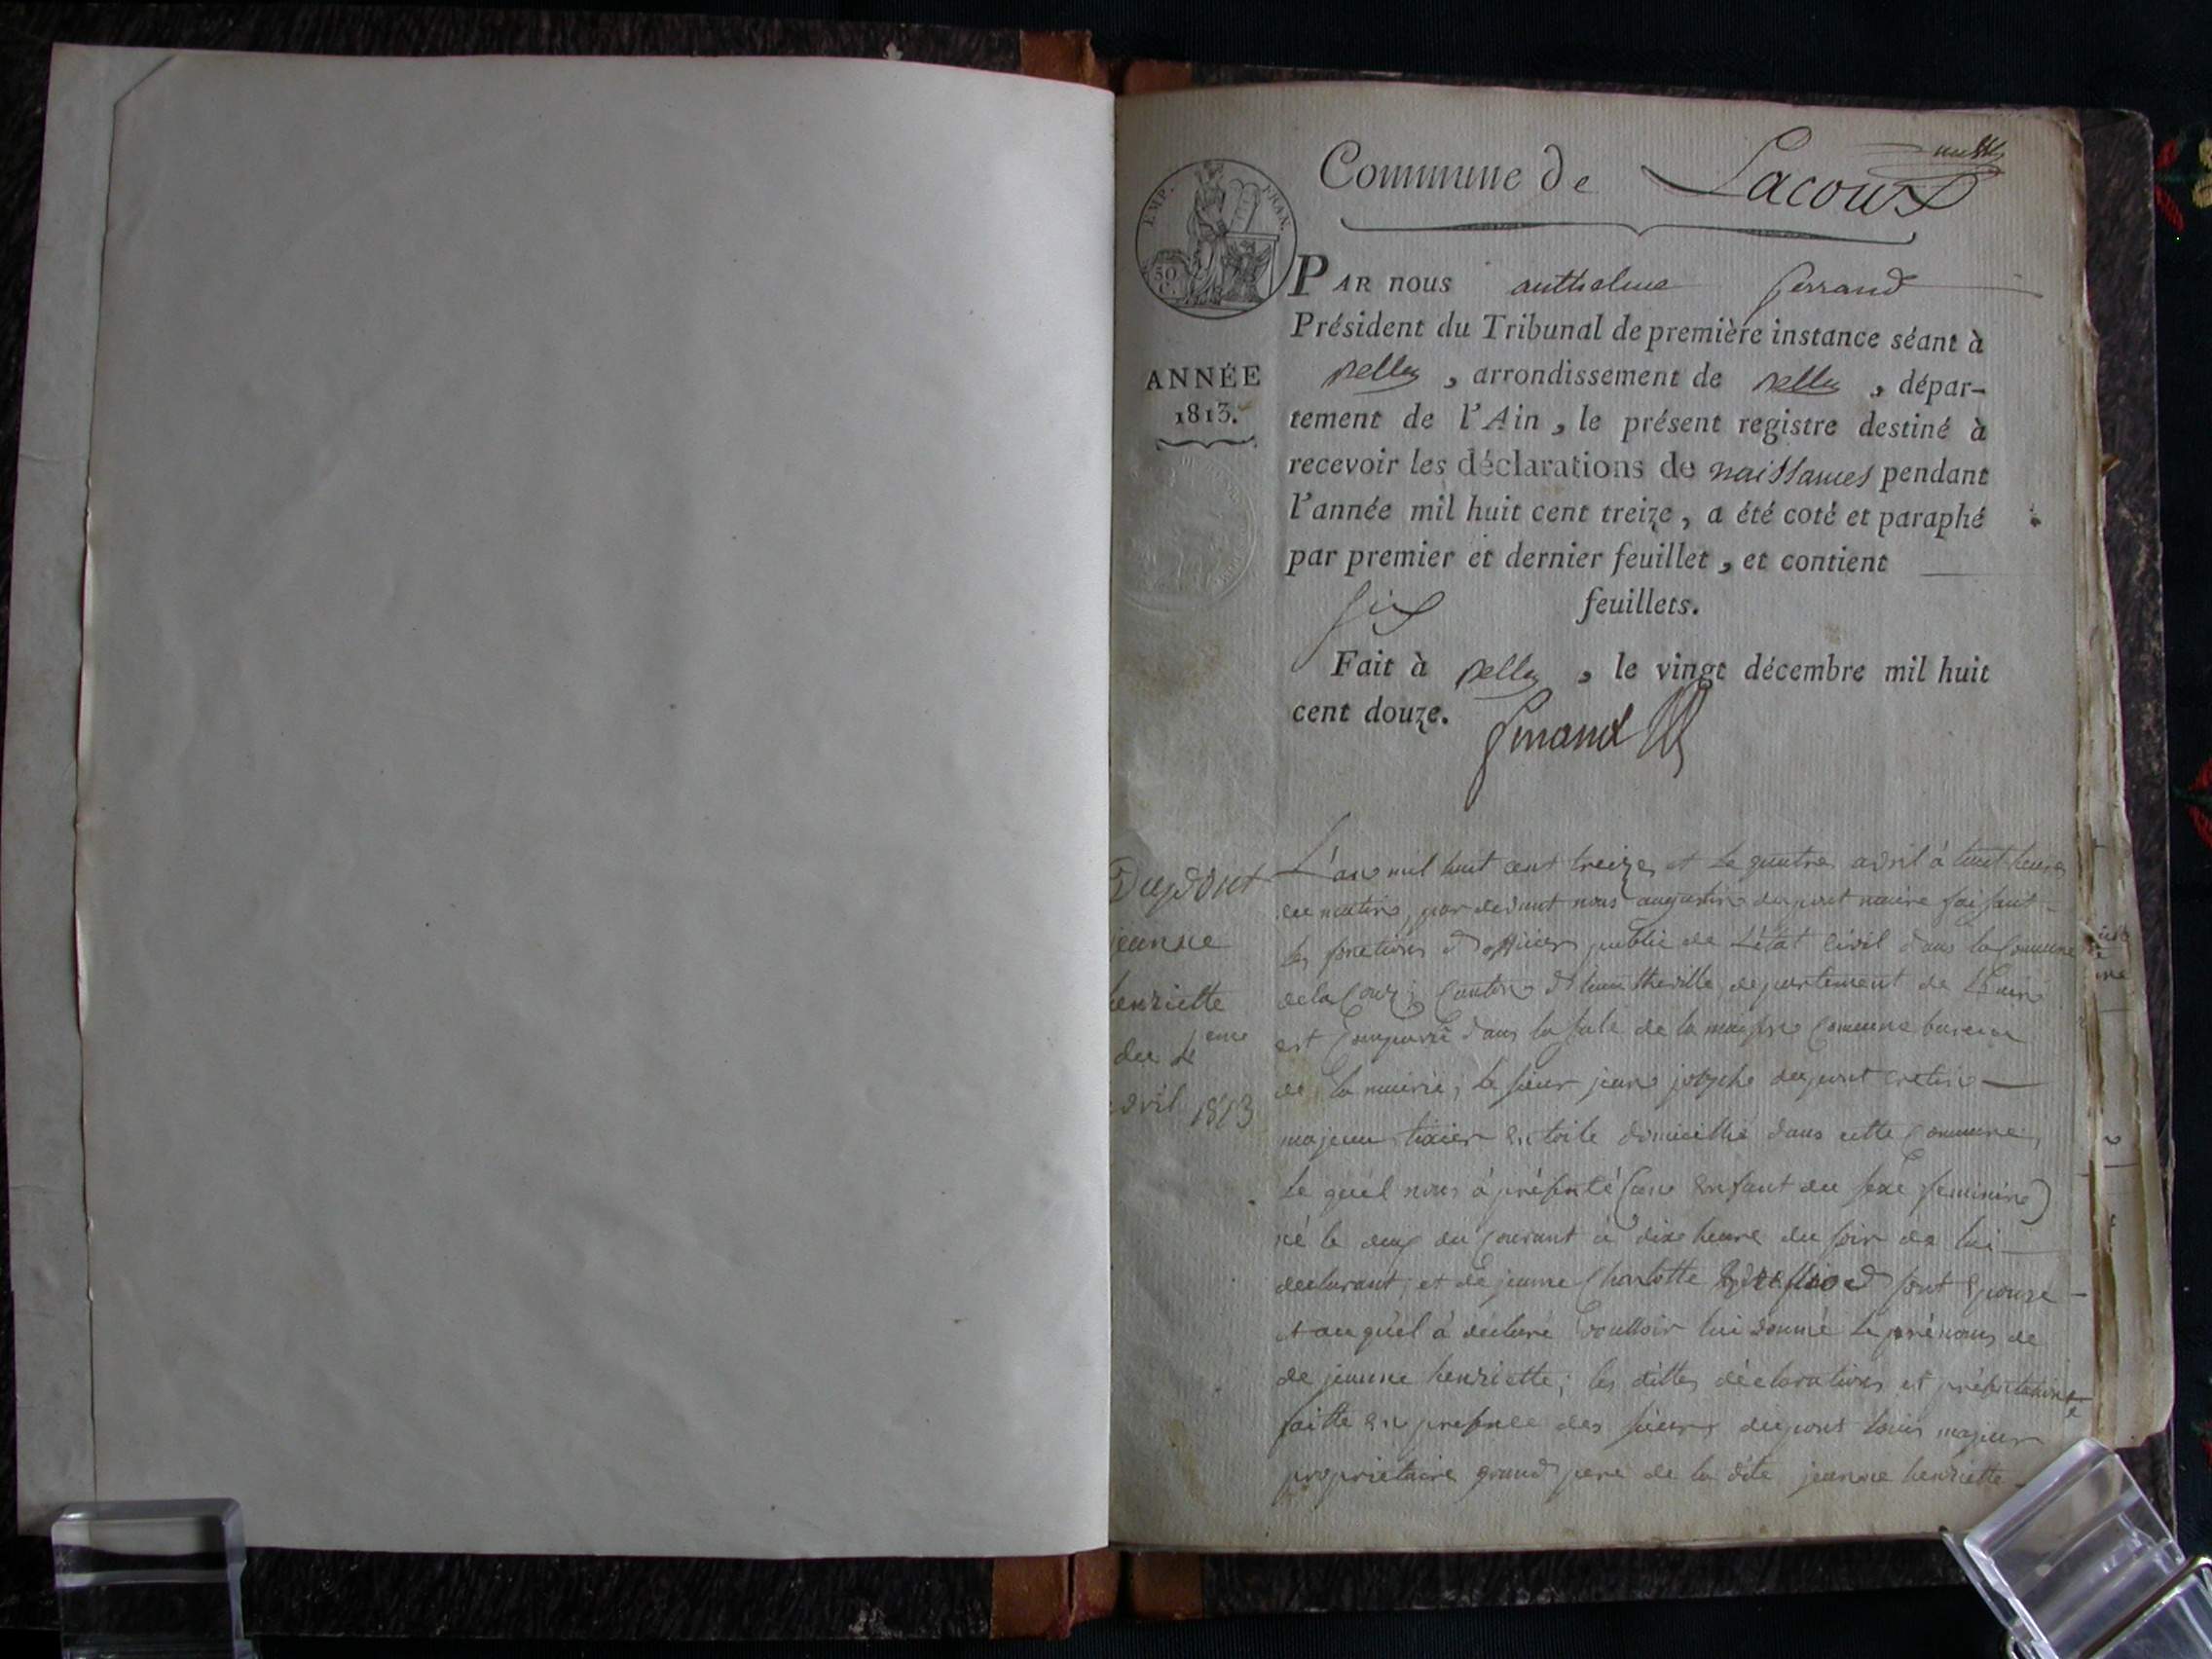 Commune de Lacoux
EMP. FRAN.
50
C.
PAR nous anthelme ferrand
Président du Tribunal de première instance séant à
Belley, arrondissement de Belley, dépar-
tement de l'Ain, le présent registre destiné à
recevoir les déclarations de naissances pendant
l'année mil huit cent treize, a été coté et paraphé
par premier et dernier feuillet, et contient
six feuillets.
Fait à Belley, le vingt décembre mil huit
cent douze.
ferrand
ANNÉE
1813.
Dupont
jeanne
henriette
du 4eme
avril 1813
L'an mil huit cent treize et le quatre avril à huit heure
du matin, par devant nous augustin dupont maire faisant
les fonctions d'officier public de L'état Civil dans la Commune
de la Coux; Canton d'hauteville, departement de L'ain
est Comparu dans la sale de la maison Commune bureau
de la mairie; le sieur jean josephe dupont cretin
majeur tixier en toile domicillié dans cette Commune,
le quel nous à présenté (une Enfant du sexe feminine)
né le deux du Courant à dixe heure du soir de lui
declarant, et de jeanne Charlotte sont Epouse
et auquel à declaré voulloir lui donné le prénoms de
de jeanne henriette; les dittes déclarations et présentations
faitte en presence des sieurs dupont louis majeur
proprietaire grand pere de la dite jeanne henriette